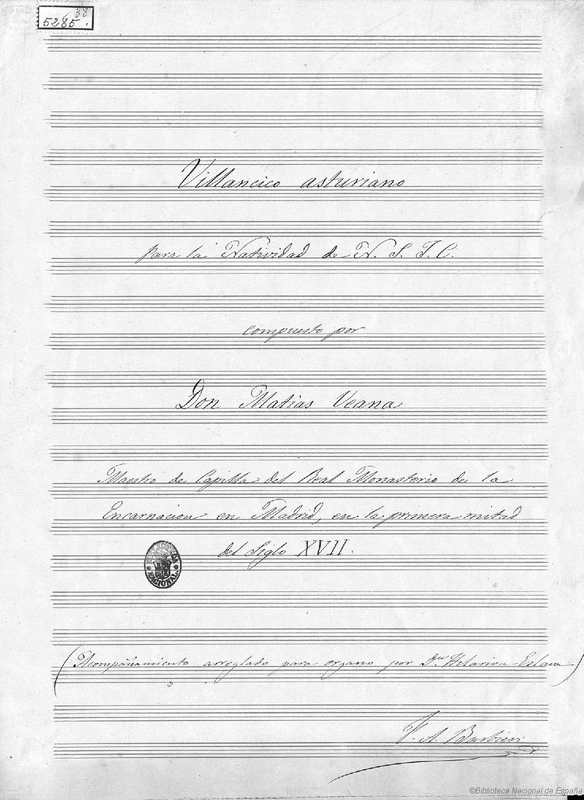 38
5285.
Villancico asturiano
para la Natividad de N. S. J. C.
compuesto por
Don Matias Veana
Maestro de Capilla del Real Monasterio de la
Encarnacion en Madrid, en la primera mitad
del Siglo XVII.
NACIONAL
(Acompañamiento arreglado para organo por Dn Hilarion Eslava)
F. A. Barbieri
©Biblioteca Nacional de España